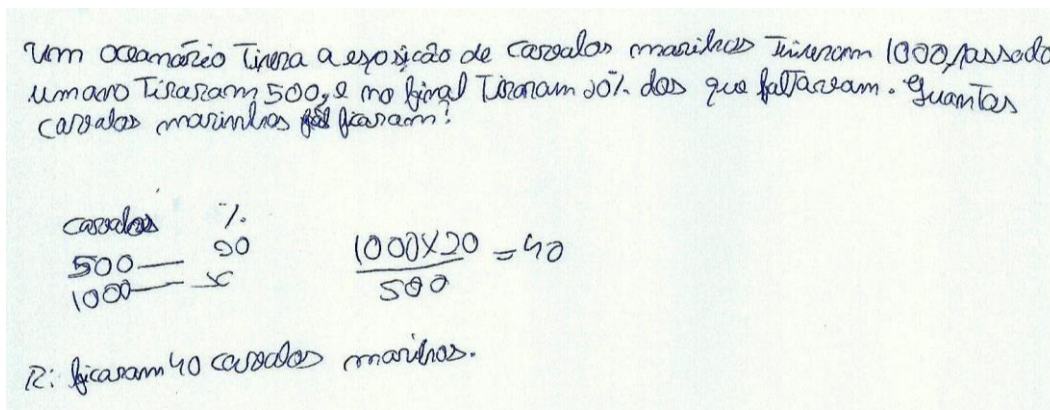 Um oceanário Tinha a exposição de cavalos marinhos Tiveram 1000, passado
um ano Tiraram 500, e no final Tiraram 20% dos que faltavam. Quantos
cavalos marinhos ficaram?
cavalos %
500 — 20
1000 — x
1000X20 = 40
500
R: ficaram 40 cavalos marinhos.